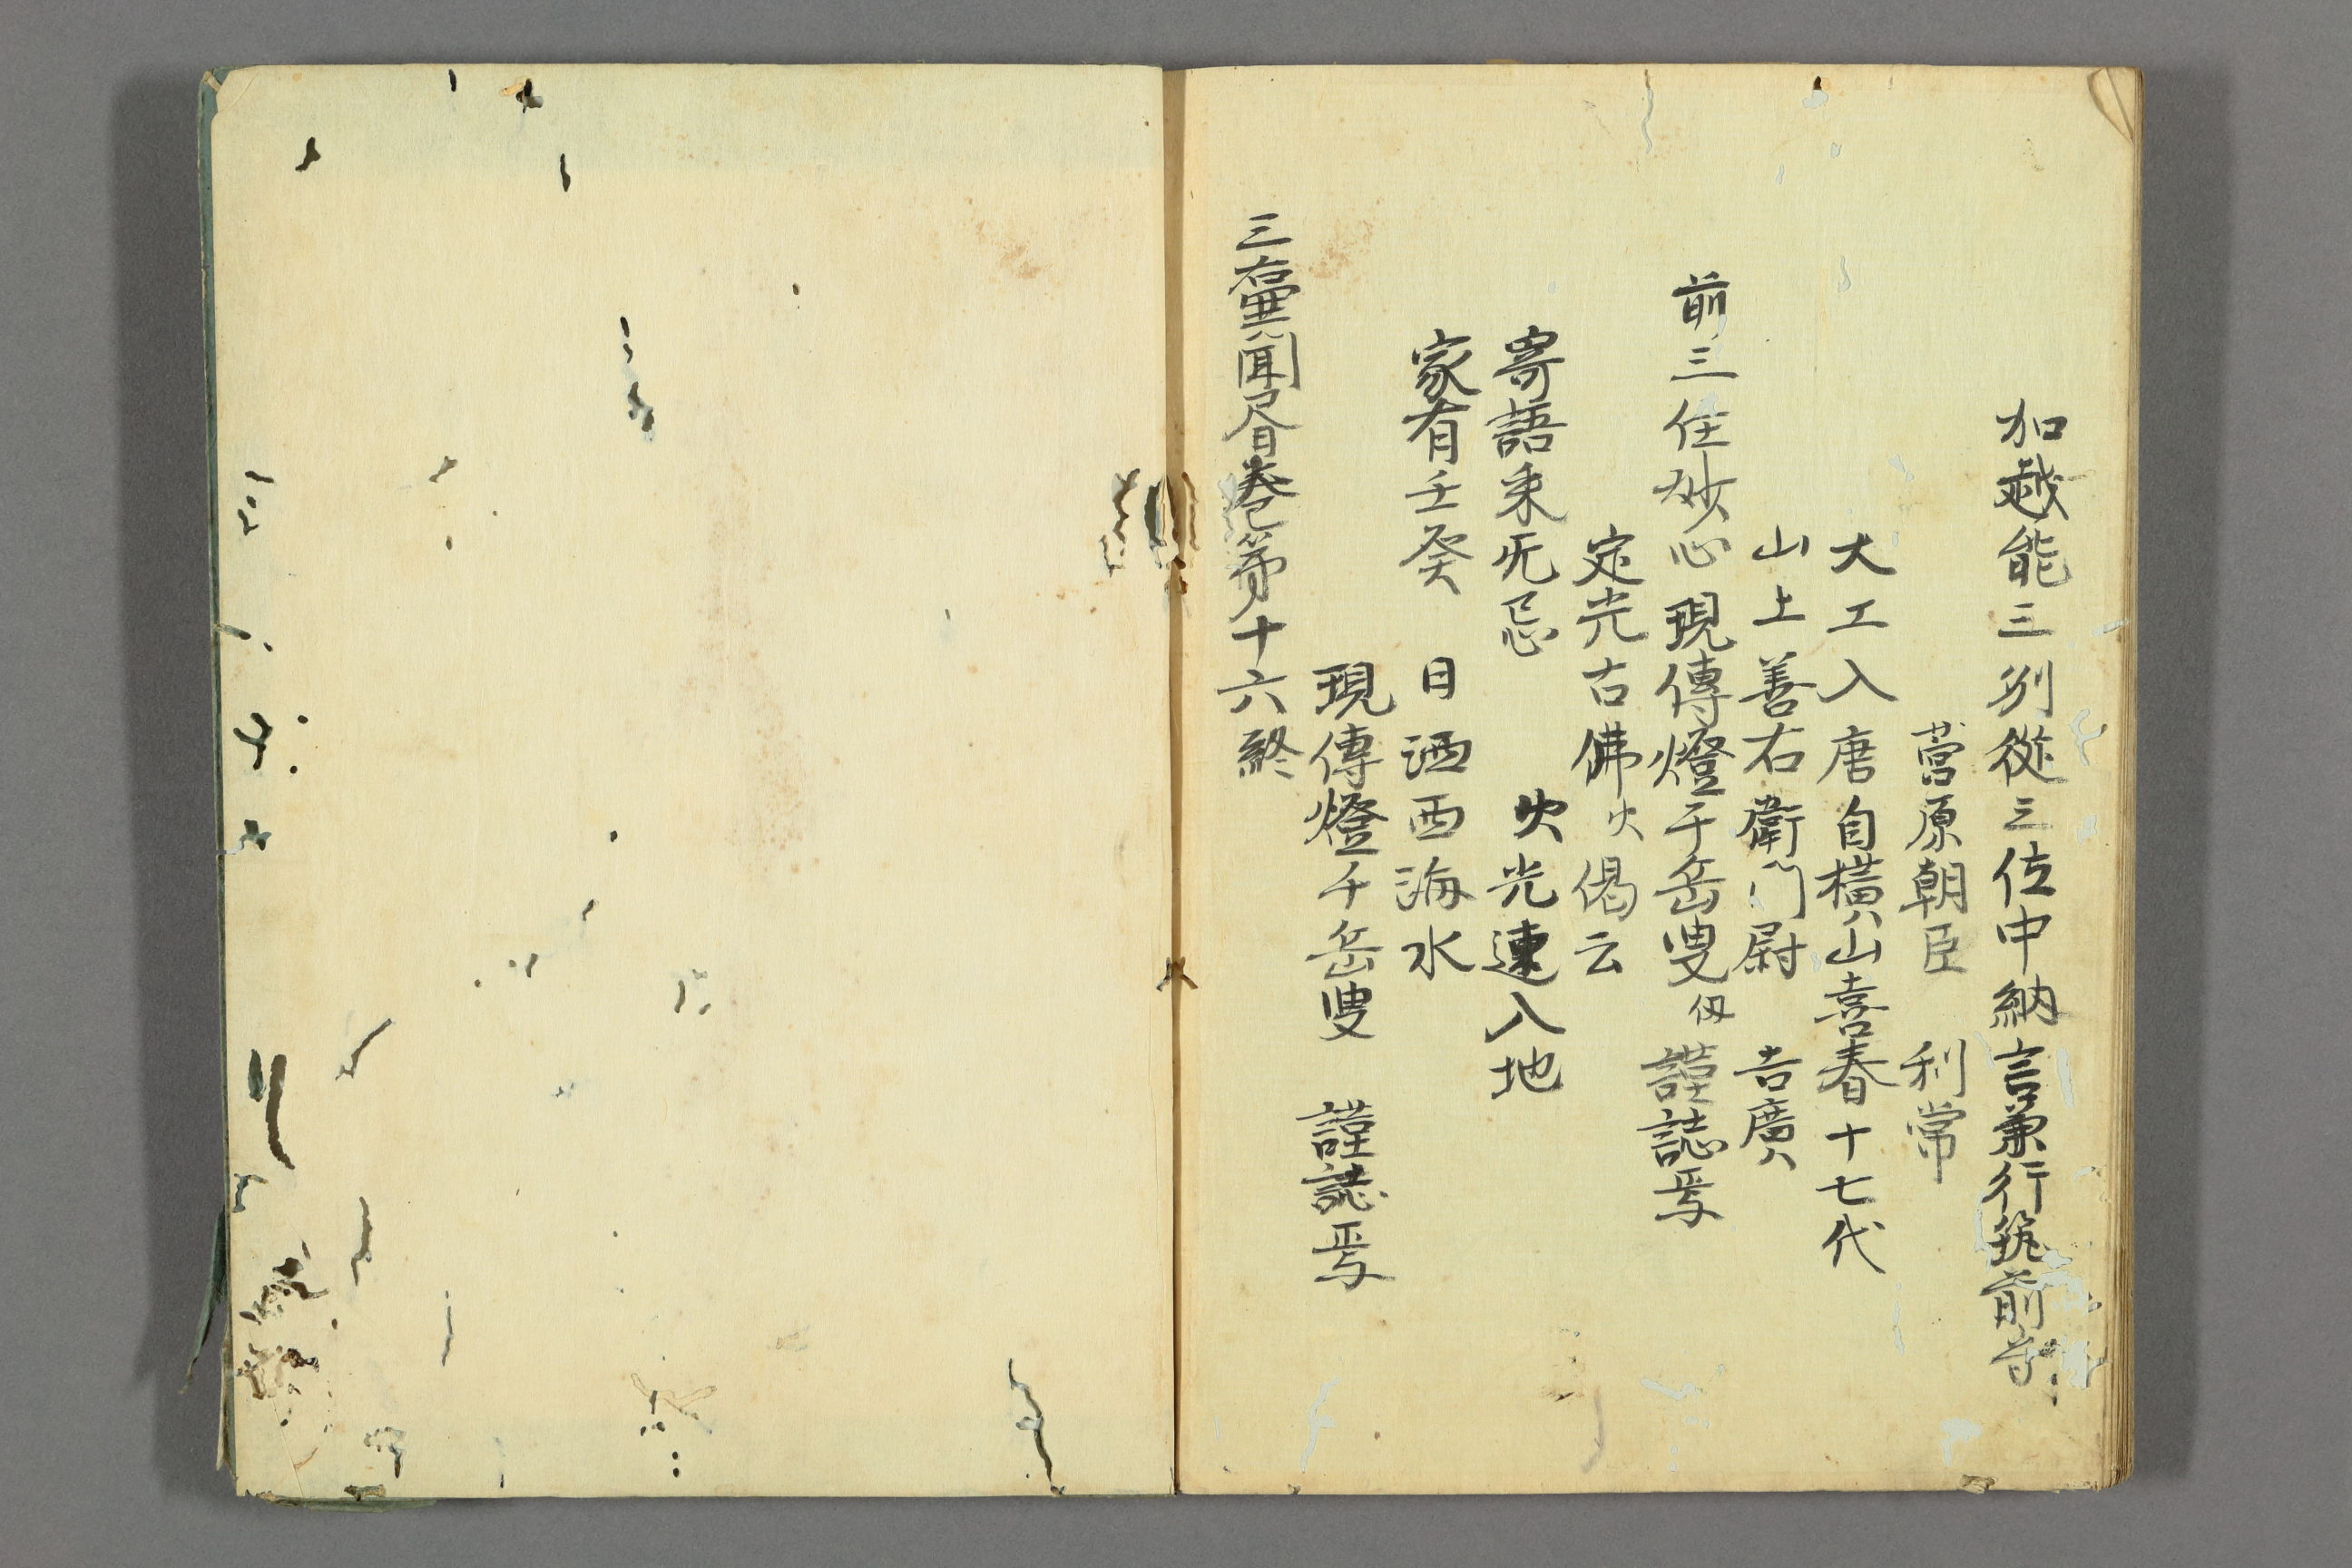 加越能三州従三位中納言兼行筑前守
菅原朝臣　利常
大工入唐自横山喜春十七代
山上善右衛門尉　吉廣
前三住妙心現傳燈千岳叟仭謹誌焉
定光古佛火偈云
寄語宋无忌　火光速入地
家有壬癸　日洒西海水
現傳燈千岳叟　謹誌焉
三壷聞書巻第十六終